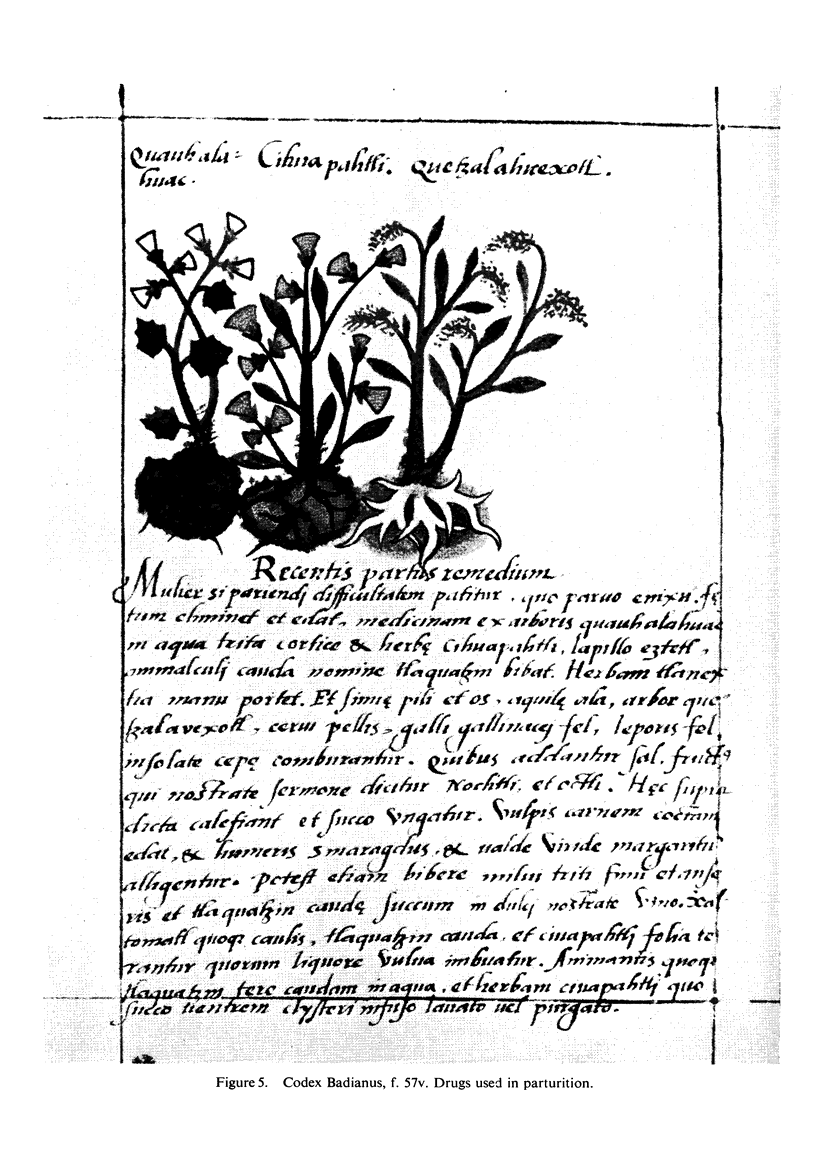 Quauhala=
huac.
Cihuapahtli. Quetzalahuexotl.
Recentis partus remedium
Mulier si pariendj difficultatem patitur, quo paruo emixu. fę
tum eliminet et edat, medicinam ex arboris quauhalahuac
in aqua trita cortice & herbę Cihuapahtli, lapillo eztetl,
ammalculj cauda nomine tlaquatzin bibat. Herbam tlanex
tia manu portet. Et simię pili et os, aquilę ala, arbor que
tzalavexotl, cerui pellis, galli gallinacej fel, leporis fel,
insolate cepę comburantur. Quibus addantur sal, fruct9
qui nostrate sermone dicitur Nochtli, et octli. Hęc supra
dicta calefiant et succo Vngatur. Vulpis carnem coctam
edat, & humeris smaragdus, & ualde Viride margaritū
alligentur. Potest etiam bibere milui triti fimū et anse
ris et tlaquatzin caudę succum in dulcj nostrate Vino. Xal
tomatl quoqꝫ caulis, tlaquatzin cauda, et ciuapahtlj folia te
rantur quorum liquore Vulua imbuatur. Animantis quoqꝫ
tlaquatzin tere caudam in aqua, et herbam ciuapahtlj quo
succo uentrem clysteri infuso lauato uel purgato.
Figure 5. Codex Badianus, f. 57v. Drugs used in parturition.